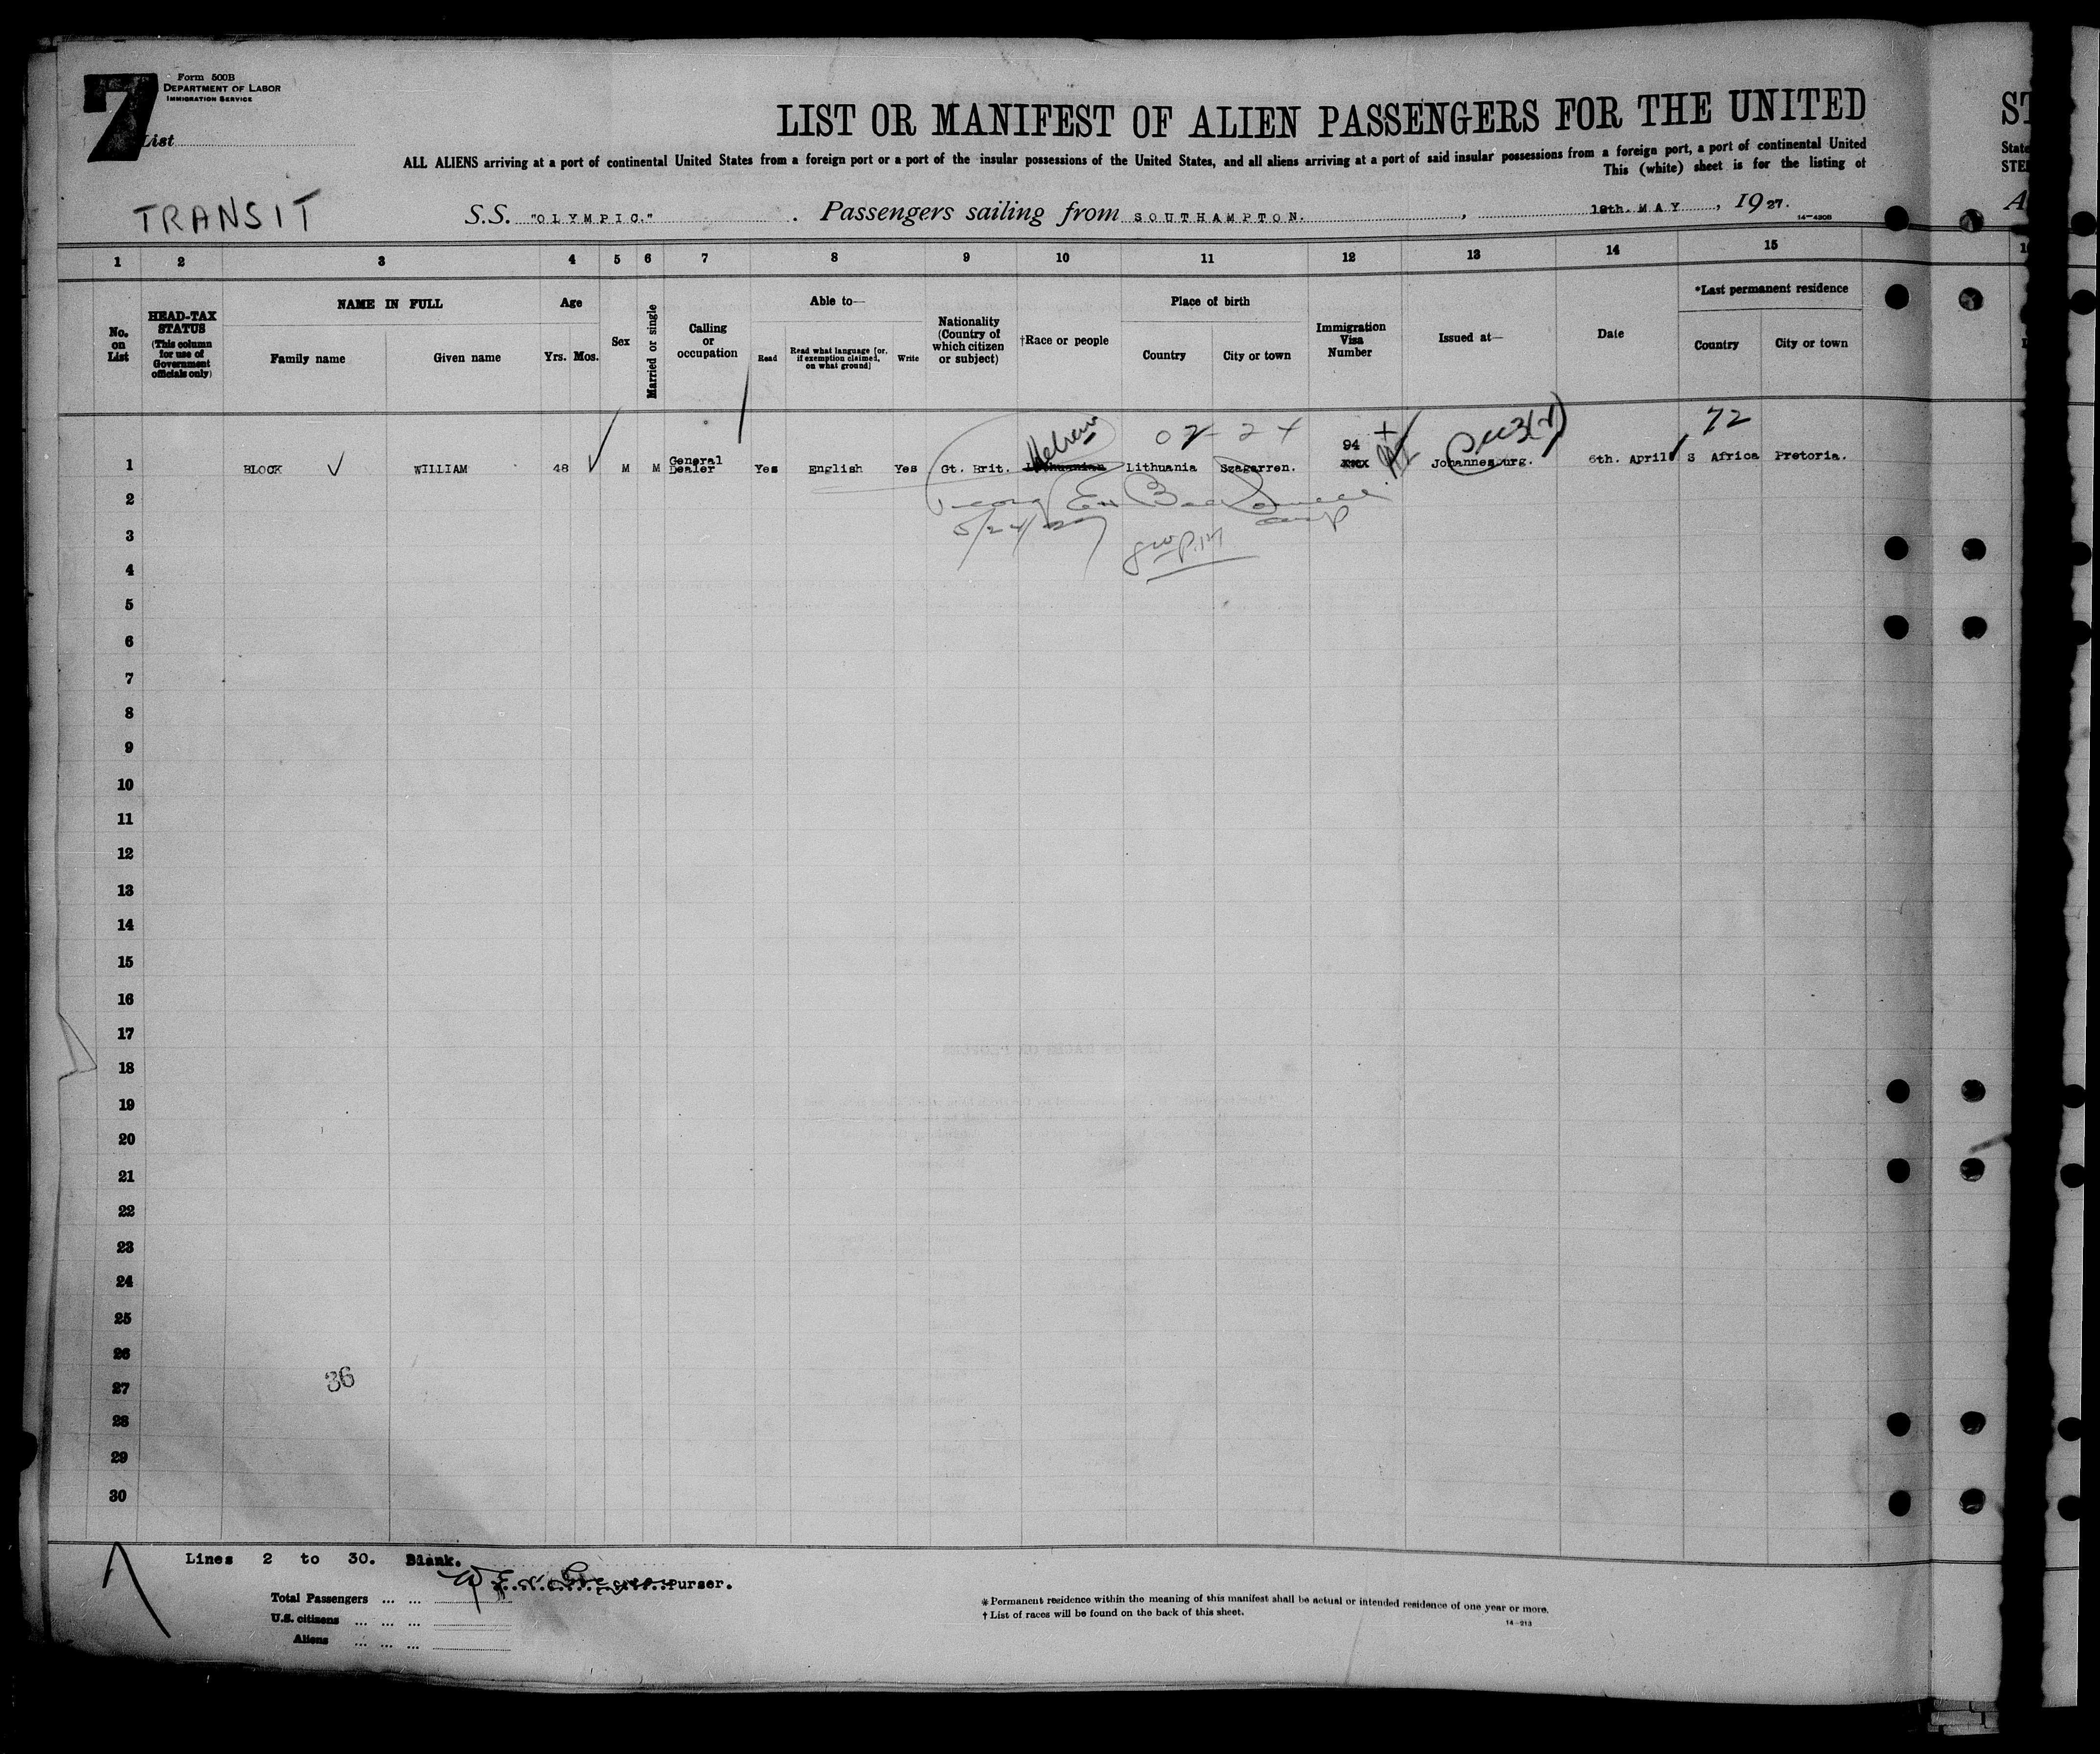 7
Form 500B
DEPARTMENT OF LABOR
IMMIGRATION SERVICE
List
LIST OR MANIFEST OF ALIEN PASSENGERS FOR THE UNITED
ST
ALL ALIENS arriving at a port of continental United States from a foreign port or a port of the insular possessions of the United States, and all aliens arriving at a port of said insular possessions from a foreign port, a port of continental United
State
This (white) sheet is for the listing of
STE
TRANSIT
S.S. "OLYMPIC." . Passengers sailing from SOUTHAMPTON. , 18th. MAY , 1927.
A
14-4208
1 2 3 4 5 6 7 8 9 10 11 12 13 14 15
No. on List
HEAD-TAX STATUS (This column for use of Government officials only)
NAME IN FULL
Family name Given name
Age
Yrs. Mos.
Sex
Married or single
Calling or occupation
Able to—
Read
Read what language [or, if exemption claimed, on what ground]
Write
Nationality (Country of which citizen or subject)
†Race or people
Place of birth
Country City or town
Immigration Visa Number
Issued at—
Date
*Last permanent residence
Country City or town
Hebrew 94 + 72
1 BLOCK WILLIAM 48 M M General Dealer Yes English Yes Gt. Brit. Lithuanian Lithuania Szagarren. Johannesburg. 6th. April S Africa Pretoria.
2
3 5/24/27
4
5
6
7
8
9
10
11
12
13
14
15
16
17
18
19
20
21
22
23
24
25
26
27 36
28
29
30
Lines 2 to 30. Blank.
Purser.
Total Passengers ... ...
U.S. citizens ... ... ...
Aliens ... ... ...
* Permanent residence within the meaning of this manifest shall be actual or intended residence of one year or more.
† List of races will be found on the back of this sheet.
14-213